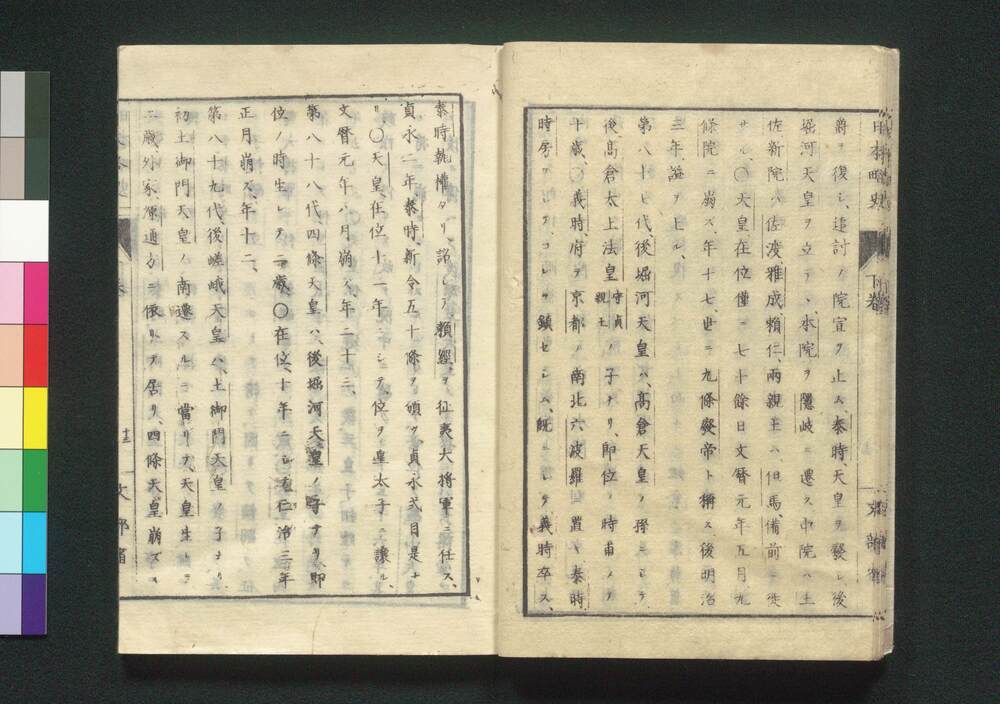 日本略史
下卷
文部省
爵ヲ復シ、追討ノ院宣ヲ止ム、泰時、天皇ヲ廢シ、後
堀河天皇ヲ立テ、本院ヲ隱岐ニ遷ス中院ハ土
佐新院ハ佐渡雅成、賴仁、兩親王ハ、但馬、備前ニ徙
サル、〇天皇在位僅ニ七十餘日文曆元年五月九
條院ニ崩ズ、年十七、世ニ九條廢帝ト稱ス後明治
三年、謚ヲ上ル、
第八十七代後堀河天皇ハ、高倉天皇ノ孫ニシテ、
後高倉太上法皇守貞親王ノ子ナリ、即位ノ時甫メテ
十歲、〇義時、府ヲ京都ノ南北六波羅ニ置キ、泰時、
時房ヲシテコレヲ鎮セシム、既ニシテ義時卒ス、
泰時執權タリ、詔シテ賴經ヲ征夷大將軍ニ任ス、
貞永一年、泰時、新令五十條ヲ頒ツ貞永式目是ナ
リ、〇天皇、在位十一年ニシテ、位ヲ皇太子ニ讓ル、
文曆元年八月崩ス、年二十三、
第八十八代四條天皇ハ、後堀河天皇ノ子ナリ、即
位ノ時生レテ二歲、〇在位、十年ニシテ仁治三年
正月崩ス、年十二、
第八十九代、後嵯峨天皇ハ、土御門天皇ノ子ナリ、
初土御門天皇ノ南遷スルニ當リテ、天皇生レテ
二歲、外家、源通方ニ依リテ居リ、四條天皇崩ズ
十三
文部省